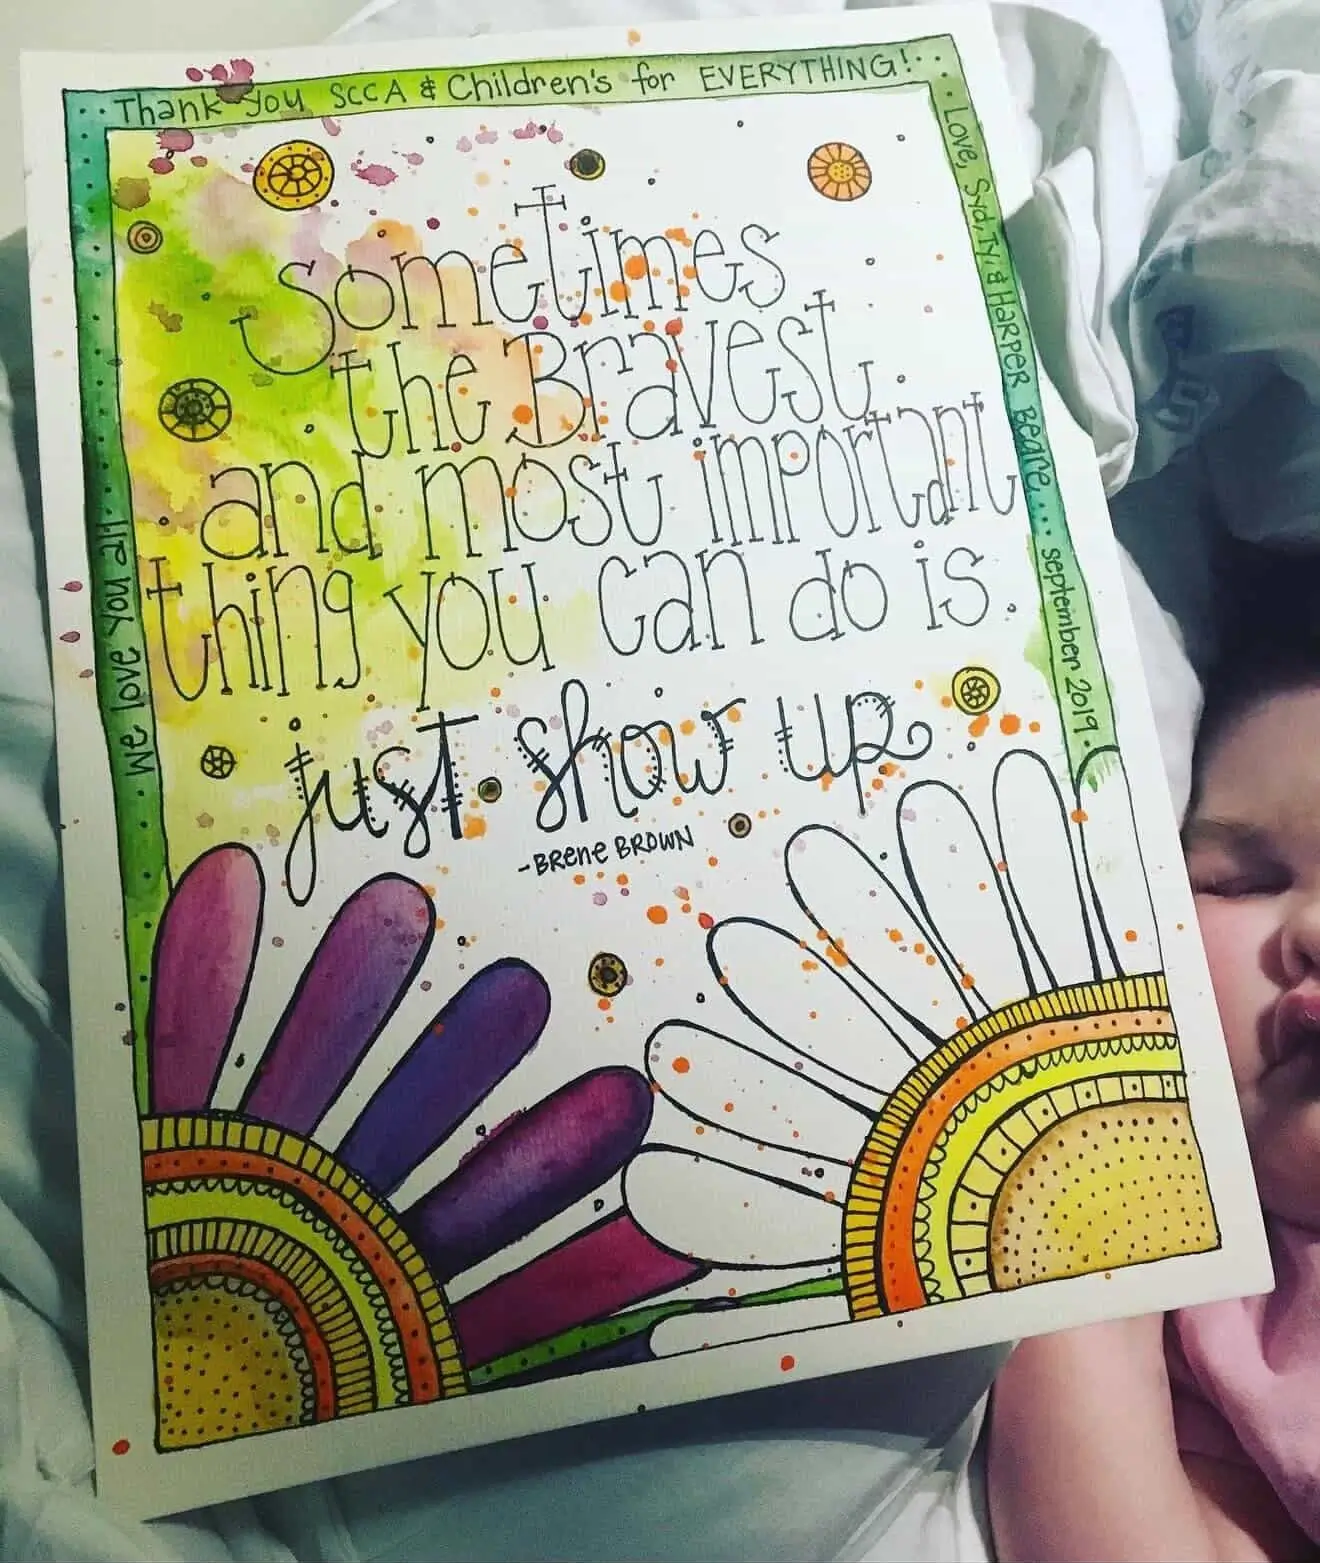 Thank you SCCA & Children's for EVERYTHING!
Love, Syd, Ty, & HARPER BEARE... september 2019
Sometimes
the Bravest
and most important
thing you can do is
just show up
-BRENE BROWN
We love you all